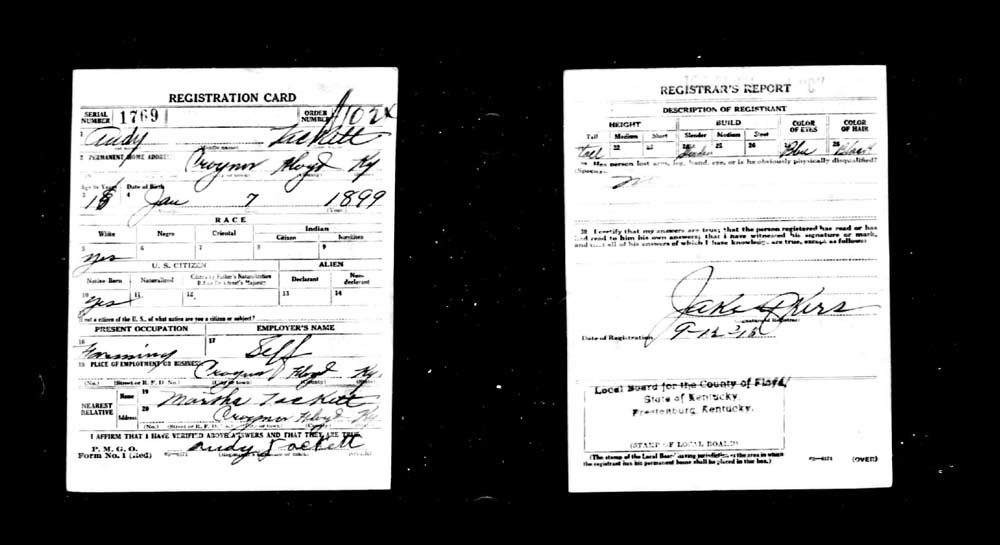 REGISTRATION CARD
SERIAL NUMBER 1769 ORDER NUMBER
1 Andy Tackett
2 PERMANENT HOME ADDRESS: Craynor Floyd Ky
Age in Years Date of Birth
3 18 4 Jan 7 1899
(Year.)
RACE
White Negro Oriental Indian
Citizen Noncitizen
5 6 7 8 9
yes
U. S. CITIZEN ALIEN
Native Born Naturalized Citizen by Father's Naturalization Before Registrant's Majority Declarant Non-declarant
10 11 12 13 14
Yes
If not a citizen of the U. S., of what nation are you a citizen or subject?
PRESENT OCCUPATION EMPLOYER'S NAME
16 Farming 17 Self
18 PLACE OF EMPLOYMENT OR BUSINESS: Craynor Floyd Ky.
(No.) (Street or R. F. D. No.) (City or town) (County) (State)
NEAREST RELATIVE Name 19 Martha Tackett
Address 20 Craynor Floyd Ky
(No.) (Street or R. F. D. No.) (City or town) (County) (State)
I AFFIRM THAT I HAVE VERIFIED ABOVE ANSWERS AND THAT THEY ARE TRUE
P. M. G. O.
Form No. 1 (Red) Andy Tackett (OVER)
REGISTRAR'S REPORT
DESCRIPTION OF REGISTRANT
HEIGHT BUILD COLOR OF EYES COLOR OF HAIR
Tall Medium Short Slender Medium Stout
Tall 22 23 24 Slender 25 26 Blue 28 Black
29 Has person lost arm, leg, hand, eye, or is he obviously physically disqualified?
(Specify.)
No
30 I certify that my answers are true; that the person registered has read or has had read to him his own answers; that I have witnessed his signature or mark, and that all of his answers of which I have knowledge are true, except as follows:
Jake Akers
Date of Registration 9-12-18
Local Board for the County of Floyd,
State of Kentucky,
Prestonburg, Kentucky.
(STAMP OF LOCAL BOARD)
(The stamp of the Local Board having jurisdiction of the area in which
the registrant has his permanent home shall be placed in this box.)
(OVER)